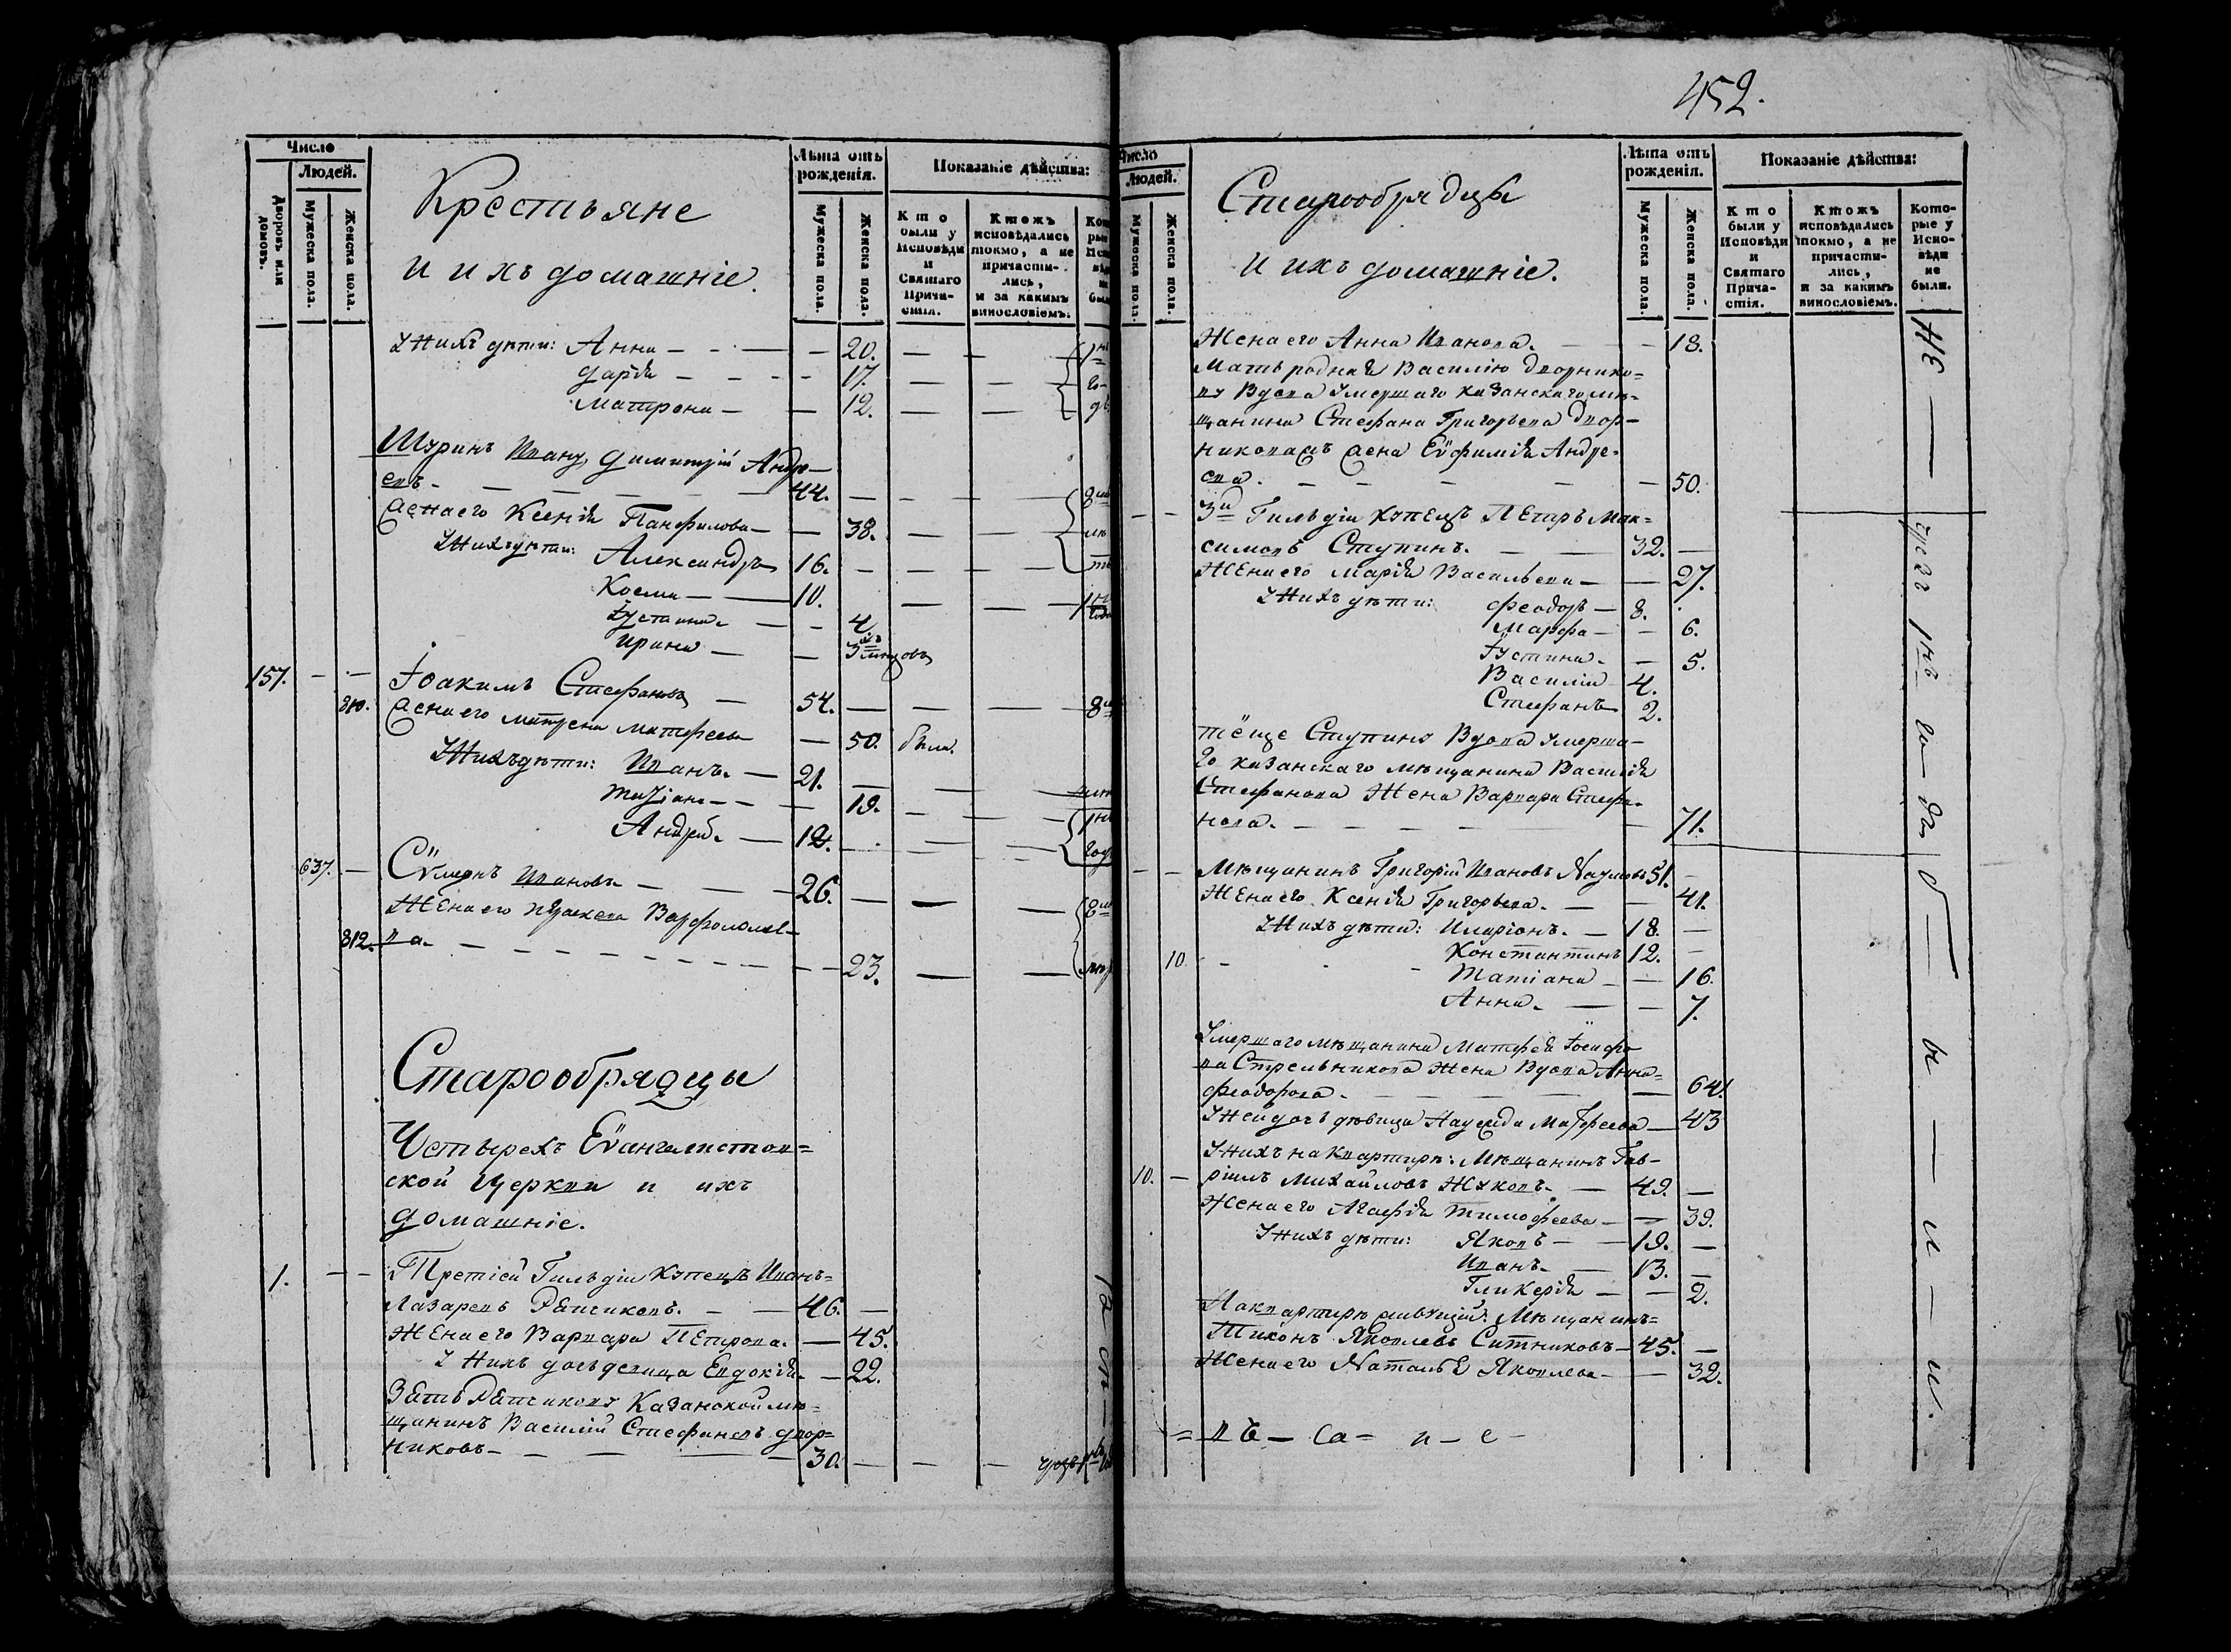 452.
Число
Людей.
Дворовъ или домовъ.
Мужеска пола.
Женска пола.
Крестьяне
и ихъ домашніе.
Лѣта отъ рожденія.
Мужеска пола.
Женска пола.
Показаніе дѣйства:
Кто были у Исповѣди и Святаго Прича-стія.
Ктожъ исповѣдались токмо, а не причасти-лись, и за какимъ винословіемъ.
У нихъ дѣти: Анна — 20.
Дарія — 17.
Матрона — 12.
Шуринъ Ивану, Димитрій Андре-
евъ — 44.
Жена его Ксенія Панфилова — 38.
У нихъ дѣти: Александръ 16.
Косма — 10.
Іустина — 4.
Ирина — 3 мѣсяцовъ
157. Іоакимъ Стефановъ — 54.
810. Жена его Матрена Матфеева — 50. была.
У нихъ дѣти: Иванъ — 21.
Татіана — 19.
Андрей — 12.
637. Сѵмеонъ Ивановъ — 26.
Жена его Праскева Варфоломее-
812. ва — 23.
Старообрядцы
Четырехъ Еѵангелистов=
ской Церкви и ихъ
домашніе.
1. Третіей Гильдіи Купецъ Иванъ=
Лазаревъ — 46.
Жена его Варвара Петрова — 45.
У нихъ дочь девица Евдокія — 22.
Зять Казанской мѣ=
щанинъ Василий Стефановъ Двор=
никовъ — 30.
Число
Людей.
Мужеска пола.
Женска пола.
Старообрядцы
и ихъ домашніе.
Лѣта отъ рожденія.
Мужеска пола.
Женска пола.
Показаніе дѣйства:
Кто были у Исповѣди и Святаго Прича-стія.
Ктожъ исповѣдались токмо, а не причасти-лись, и за какимъ винословіемъ.
Кото-рые у Испо-вѣди не были.
Жена его Анна Иванова — 18.
Мать родная Василію Дворнико=
ву Вдова Умершаго Казанскаго мѣ=
щанина Стефана Григорьева Двор-
никова Жена Еѵфимія Андре-
ева — 50.
3й Гильдіи Купецъ Петръ Мак=
симовъ Ступинъ — 32.
Жена его Марія Васильева — 27.
У нихъ дѣти: Феодоръ — 8.
Марфа — 6.
Іустина — 5.
Василій 4.
Стефанъ 2.
Тёще Ступину Вдова Умерша-
го Казанскаго мѣщанина Василія
Стефанова Жена Варвара Стефа-
нова — 71.
Мѣщанинъ Григорій Ивановъ Наумовъ 51.
Жена его Ксенія Григорьева — 41.
У нихъ дѣти: Иларіонъ — 18.
10. Константинъ 12.
Татіана — 16.
Анна — 7.
Умершаго мѣщанина Матфея Іосифо
ва Стрельникова Жена Вдова Анна=
Феодорова — 64.
У ней дочь дѣвица Надежда Матфеева — 43
У нихъ на квартирѣ: Мѣщанинъ Гав-
10. ріилъ Михайловъ Жуковъ — 49.
Жена его Агафія Тимофеева — 39.
У нихъ дѣти: Яковъ — 19.
Иванъ — 13.
Гликерія — 2.
На квартирѣ живущій: Мѣщанинъ=
Тихонъ Яковлевъ Ситниковъ — 45.
Жена его Наталья Яковлева — 32.